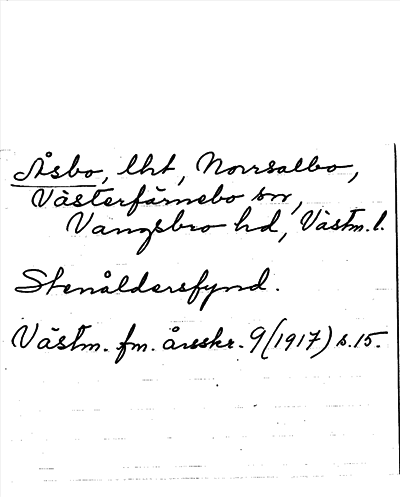 Åsbo, lht, Norrsalbo,
Västerfärnebo sn,
Vangsbro hd, Västm. l.
Stenåldersfynd.
Västm. fm. årsskr. 9 (1917) s. 15.